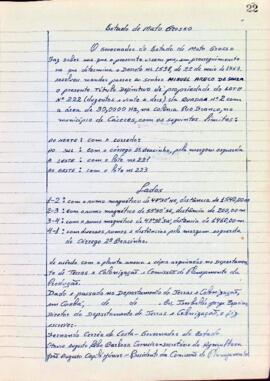 22
Estado de Mato Grosso
O Governador do Estado de Mato Grosso
Faz saber aos que o presente virem que, em prosseguimento
ao que determina o Decreto nº 1598, de 22 de maio de 1953,
resolveu mandar passar ao senhor MIGUEL DE SOUZA
o presente Título Definitivo de propriedade do LOTE
Nº 222 (duzentos e vinte e dois) da QUADRA Nº 2 com
a área de 30,0000 Hz, na colônia Rio Branco, no
município de Cáceres, com os seguintes limites:
AO NORTE: com o corredor
AO SUL: com o córrego 2º Bracinho, pela margem esquerda
A LESTE: com o lote nº 221
AO OESTE: com o lote nº 223
Lados
1-2: com o rumo magnético de distância de
2-3: com o rumo magnético de distância de 200,00 m
3-4: com o rumo magnético de distância de
4-1: com diversos rumos e distâncias pela margem esquerda
do Córrego 2º Bracinho.
de acordo com a planta anexa e cópia arquivadas no Departamen-
to de Terras e Colonização e Comissão de Planejamento da
Produção.
Dado e passado no Departamento de Terras e Colonização,
em Cuiabá, de de Eu,
Diretor do Departamento de Terras e Colonização, o fiz
escrever.
Fernando Corrêa da Costa - Governador do Estado
Barbosa - Secretário da Agricultura
João Augusto Capilé Júnior - Presidente da Comissão de Planejamento